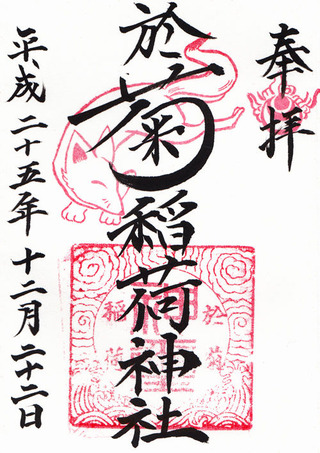 奉拝
於菊稲荷神社
平成二十五年十二月二十二日
於菊
稲荷